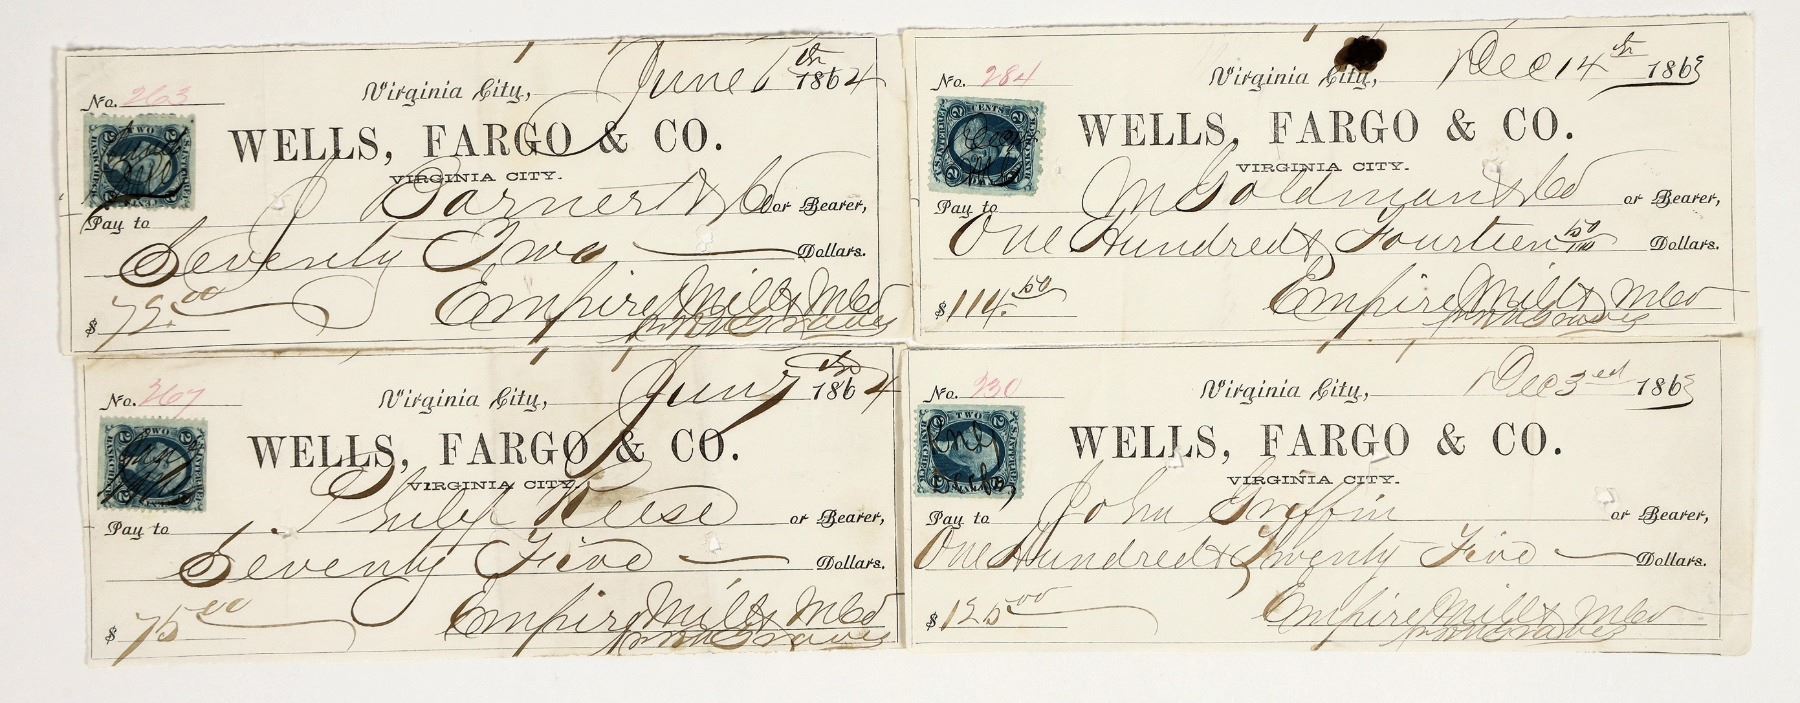 No. 263 Virginia City, June 6th 1864
WELLS, FARGO & CO.
VIRGINIA CITY.
Pay to J Barnert & Co or Bearer,
Seventy Two Dollars.
$ 72.00 Empire Mill & M Co
No. 284 Virginia City, Dec 14th 1863
WELLS, FARGO & CO.
VIRGINIA CITY.
Pay to M Goldman & Co or Bearer,
One Hundred & Fourteen 50/100 Dollars.
$ 114.50 Empire Mill & M Co
No. 267 Virginia City, Jun 7th 1864
WELLS, FARGO & CO.
VIRGINIA CITY.
Pay to Philip Reese or Bearer,
Seventy Five Dollars.
$ 75 00 Empire Mill & M Co
No. 230 Virginia City, Dec 3ed 1863
WELLS, FARGO & CO.
VIRGINIA CITY.
Pay to John Griffin or Bearer,
One Hundred & Twenty Five Dollars.
$ 125 00 Empire Mill & M Co